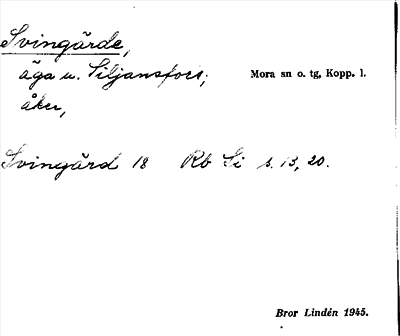 Svingärde,
äga u. Siljansfors; Mora sn o. tg, Kopp. l.
åker,
Svingärd 18 Rb Si s. 13, 20.
Bror Lindén 1945.